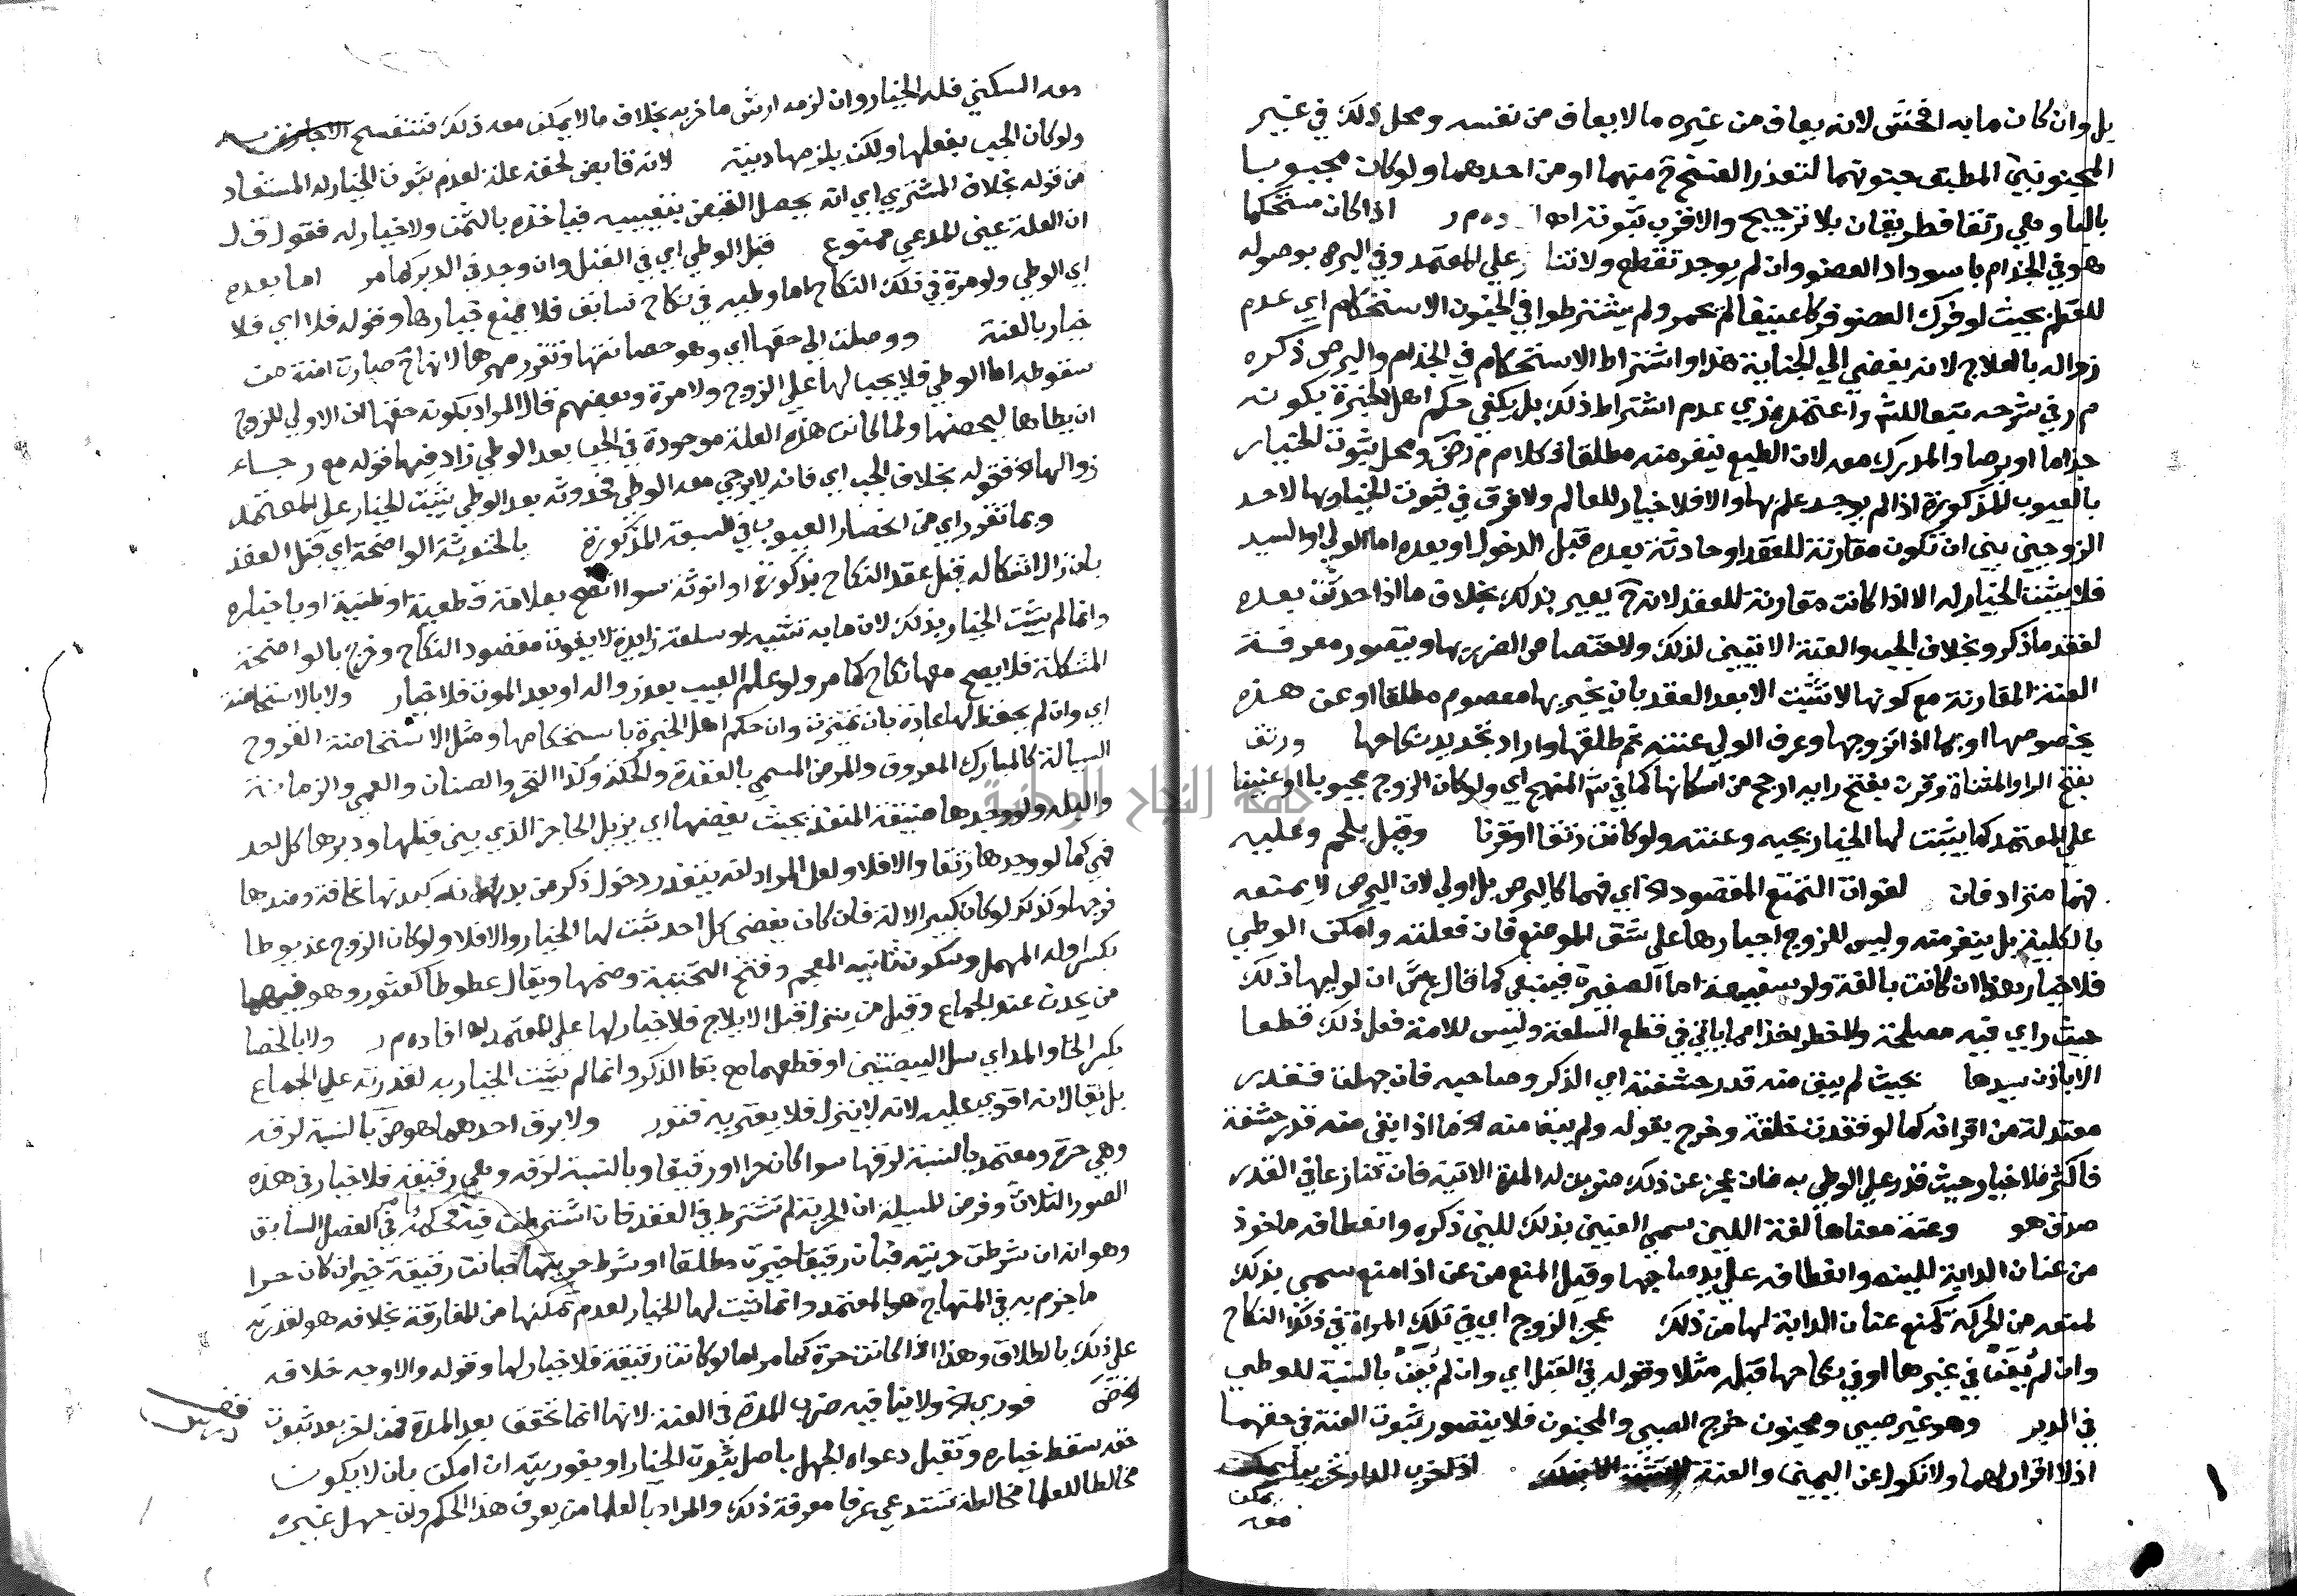 بل وان كان ما به افحش لانه يعاف من غيره ما لا يعاف من نفسه ومحل ذلك في غير
المجنونين المطبق جنونهما لتعذر الفسخ ح منهما او من احدهما ولو كان مجبوبا
بالبا وهي رتقا فطريقان بلا ترجيح والاقرب ثبوته م ر اذا كان مستحكما
هو في الجذام باسوداد العضو وان لم يوجد تقطع ولا تنا ثر علي المعتمد وفي البرص بوصوله
للعظم بحيث لو فرك العضو فركا عنيفا لم يحمر ولم يشترطوا في الجنون الاستحكام اي عدم
زواله بالعلاج لانه يفضي الي الجناية هذا واشتراط الاستحكام في الجذام والبرص ذكره
م ر في شرحه تبعا للشم واعتمد عدم اشتراط ذلك بل يكفي حكم اهل الخبرة بكونه
جذاما او برصا والمدرك معه لان الطبع ينفر منه مطلقا ومحل ثبوت الخيار
بالعيوب المذكورة اذا لم يوجد علم بها والا فلا خيار للعالم ولا فرق في ثبوت الخيار بها لاحد
الزوجين بين ان تكون مقارنة للعقد او حادثة بعده قبل الدخول او بعده اما الولي او السيد
فلا يثبت الخيار له الا اذا كانت مقارنة للعقد لانه ح يعير بذلك بخلاف ما اذا حدثت بعده
لفقد ما ذكر وبخلاف الجب والعنة الاتيين لذلك ولاختصاص الضرر بها ويتصور معرفة
العنة المقارنة مع كونها لا تثبت الا بعد العقد بان يخبر بها معصوم مطلقا او عن هذه
بخصوصها او بما اذا تزوجها وعرف الولي عنته ثم طلقها واراد تجديد نكاحها ورتق
بفتح الرا والمثناة وقرن بفتح رايه ارجح من اسكانها كما في ش المنهج اي ولو كان الزوج مجبوبا او عنينا
علي المعتمد كما يثبت لها الخيار بجبه وعنته ولو كانت رتقا او قرنا وقيل بلحم وعليه
فهما مترادفان لفوات التمتع المقصود الخ اي فهما كالبرص بل اولي لان البرص لا يمنعه
بالكلية بل ينفر منه وليس للزوج اجبارها على شق الموضع فان فعلته وامكن الوطي
فلا خيار وهذا ان كانت بالغة ولو سفيهة اما الصغيرة فينبغي كما قال ع ش ان لوليها ذلك
حيث راي فيه مصلحة ولا خطر اخذا مما ياتي في قطع السلعة وليس للامة فعل ذلك قطعا
الا باذن سيدها بحيث لم يبق منه قدر حشفته اي الذكر وصاحبه فان جهلت فتقدر
معتدلة من اقرانه كما لو فقدت خلقة وخرج بقوله ولم يبق منه الخ ما اذا بقي منه قدر حشفة
فاكثر فلا خيار حيث قدر علي الوطي به فان عجز عن ذلك ضربت له المدة الاتية فان تنازعا في القدر
صدق هو وعنة معناها لغة اللين سمي العنين بذلك للين ذكره وانعطافه ماخوذ
من عنان الدابة للينه وانعطافه علي يد صاحبها وقيل المنع من عن اذا منع سمي بذلك
لمنعه من الحركة كمنع عنان الدابة لها من ذلك عجز الزوج اي في تلك المراة في ذلك النكاح
وان لم يعن في غيرها او في نكاحها قبله مثلا وقوله في القبل اي وان لم يعن بالنسبة للوطي
في الدبر وهو غير صبي ومجنون خرج الصبي والمجنون فلا يتصور ثبوت العنة في حقهما
اذ لا اقرار لهما ولا نكول عن اليمين والعنة اذ لخرب الدار تخريبا يمكن
يمكن
معه
معه السكني فله الخيار وان لزمه ارش ما خربه بخلاف ما لا يمكن معه ذلك فتنفسح الاجارة
ولو كان الجب بفعلها ولكن يلزمها دينه لانه قابض لحقه علة لعدم ثبوت الخيار له المستفاد
من قوله بخلاف المشتري اي انه يحصل القبض بتعييبه فياخذه بالثمن ولا خيار له فقول ق ل
ان العلة عين المدعي ممنوع قبل الوطي اي في القبل وان وجد في الدبر كما مر اما بعده
اي الوطي ولو مرة في تلك النكاح اما وطيه في نكاح سابق فلا يمنع خيارها وقوله فلا اي فلا
خيار بالعنة ووصلت الي حقها اي وهو حصانتها وتقرر مهرها لانها ح صارت امنة من
سقوطه اما الوطي فلا يجب لها علي الزوج ولا مرة وبعضهم قال المراد بكونه حقها ان الاولي للزوج
ان يطاها ليحصنها ولما كانت هذه العلة موجودة في الجب بعد الوطي زاد فيها قوله مع رجاء
زوالها الخ فقوله بخلاف الجب اي فانه لا يرجي معه الوطي فحدوثه بعد الوطي يثبت الخيار علي المعتمد
وبما تقرر اي من انحصار العيوب في السبعة المذكورة بالخنوثة الواضحة اي قبل العقد
بان زال اشكاله قبل عقد النكاح بذكورة او انوثة سوا اتضح بعلامة قطعية او ظنية او باخباره
وانما لم يثبت الخيار بذلك لان ما به تشبيه لو سلعة زايدة لا يفوت مقصود النكاح وخرج بالواضحة
المشكلة فلا يصح معها نكاح كما مر ولو علم العيب بعد زواله او بعد الموت فلا خيار ولا بالاستحاضة
اي وان لم يحفظ لها عادة بان تحيرت وان حكم اهل الخبرة باستحكامها ومثل الاستحاضة القروح
السيالة كالمبارك المعروف والمرض المسمي بالعقدة والحكة وكذا البخر والصنان والعمي والزمانة
والبله ولو وجدها ضيقة المنفذ بحيث يفضها اي يزيل الحاجز الذي بين قبلها ودبرها كل احد
فهي كما لو وجدها رتقا والا فلا ولعل المراد انه يتعذر دخول ذكر من بدنه كبدنها نحافة وضدها
فرجها وكذلك لو كان كبير الالة فان كان يفضي كل احد ثبت لها الخيار والا فلا ولو كان الزوج عذيوطا
بكسر اوله المهمل وسكون ثانيه المعجم وفتح التحتية وضمها ويقال عطوطا كعثور وهو فيهما
من يحدث عند الجماع وقيل من ينزل قبل الايلاج فلا خيار لها علي المعتمد افاده م ر ولا بالخصا
بكسر الخا والمد اي سل البيضتين او قطعهما مع بقا الذكر وانما لم يثبت الخيار به لقدرته علي الجماع
بل يقال انه اقوي عليه لانه لا ينزل فلا يعتريه فتور ولا برق احدهما هو ض بالنسبة لرقه
وهي حرة ومعتمد بالنسبة لرقها سوا كان حرا او رقيقا وبالنسبة لرقه وهي رقيقة فلا خيار في هذه
الصور الثلاث وفرض المسيلة ان الحرية لم تشترط في العقد فان اشترطت فيه فحكمه ما مر في الفصل السابق
وهو انه ان شرطت حريته فبان رقيقا خيرت مطلقا او شرط حريتها فبانت رقيقة خير ان كان حرا
ما جزم به في المنهاج هو المعتمد وانما ثبت لها الخيار لعدم تمكنها من المفارقة بخلافه هو لقدرته
علي ذلك بالطلاق وهذا اذا كانت حرة كما مر اما لو كانت رقيقة فلا خيار لها وقوله والاوجه خلافه
فوري الخ ولا ينافيه ضرب المدة في العنة لانها انما تتحقق بعد المدة فمن اخر بعد ثبوت
حقه سقط خياره وتقبل دعواه الجهل باصل ثبوت الخيار او بفوريته ان امكن بان لا يكون
مخالطا للعلما مخالطة تستدعي عرفا معرفة ذلك والمراد بالعلما من يعرف هذا الحكم وان جهل غيره
جامعة النجاح الوطنية